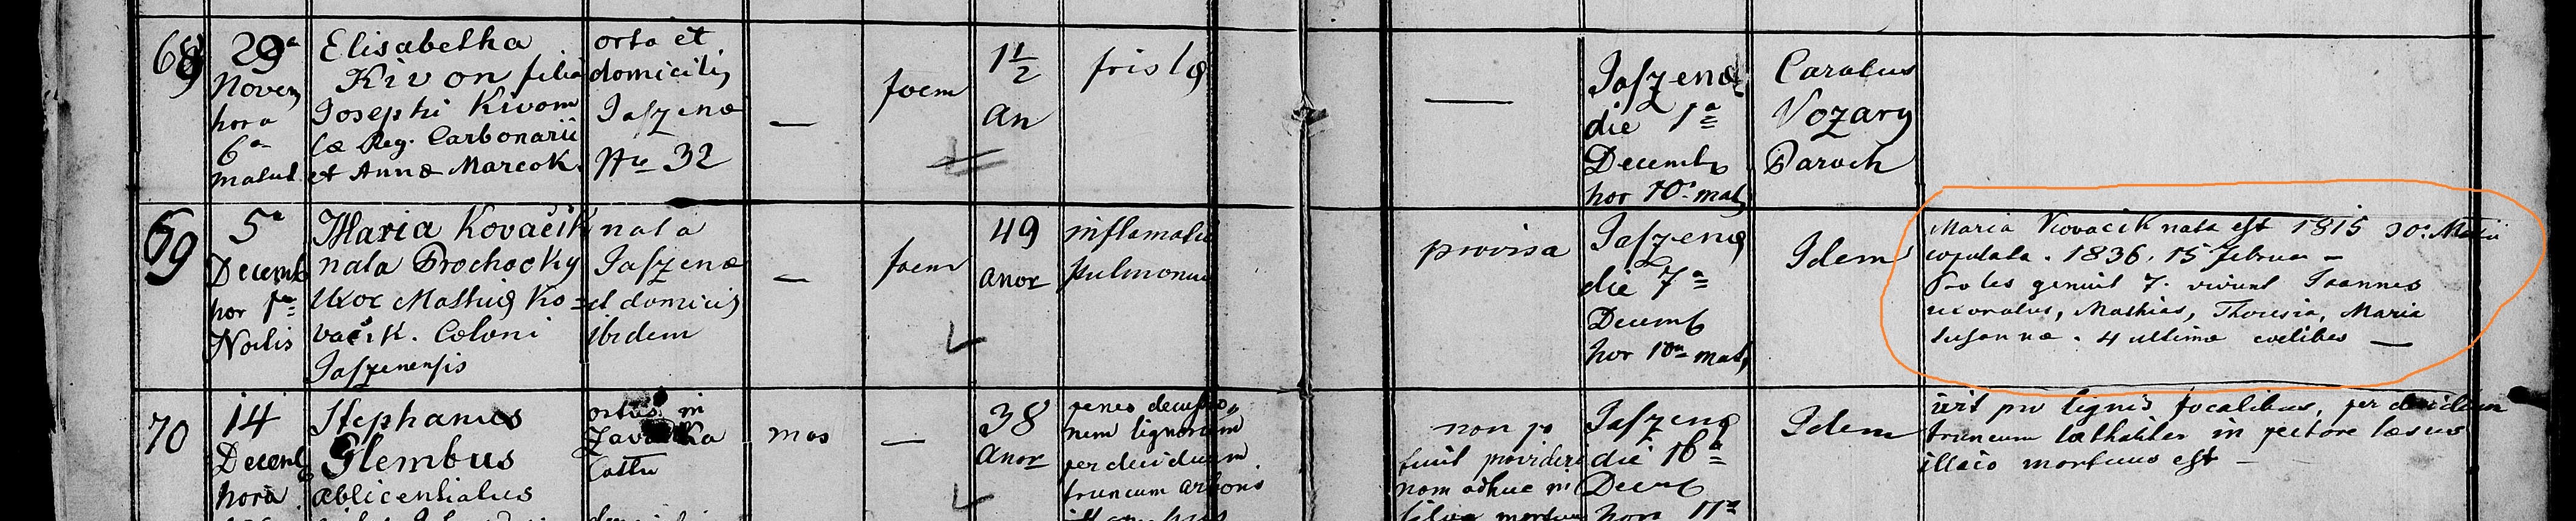 69
29ª
Novem
hora
6ª
matut
Elisabetha
Kivon filia
Josephi Kivon
Cæ Reg. Carbonarii
et Annæ Marcok.
orta et
domicilis
Jaszenæ
Nro 32
—
foem
1 1/2
an
—
Jaszenæ
die 1ª
Decemb
hor 10ª mat
Carolus
Vozary
Paroch
69
5ª
Decemb
hor 1ª
Noctis
Maria Kovačik
nata Prochocky
Uxor Mathiæ Ko=
vačik. Coloni
Jaszenensis
nata
Jaszenæ
et domicis
ibidem
—
foem
49
anor
inflamatio
pulmonum
provisa
Jaszenæ
die 7ª
Decemb
hor 10ª mat
Idem
Maria Kovacik nata est 1815 30. Maii
copulata. 1836. 15 februar —
Proles genuit 7. vivunt Joannes
uxoratus, Mathias, Theresia, Maria
Susannæ. 4 ultimæ cœlibes —
70
14
Decemb
hora
Stephanus
Glembus
ablicentiatus
ortus in
mas
—
38
anor
penes decussio
nem lignorum
per deciduum
truncum arboris
non po
tuit provideri
nam adhuc in
Jaszenæ
die 16ª
Decemb
hora 11ª
Idem
ivit pro lignis focalibus, per deciduum
truncum læthaliter in pectore læsus
illaco mortuus est —